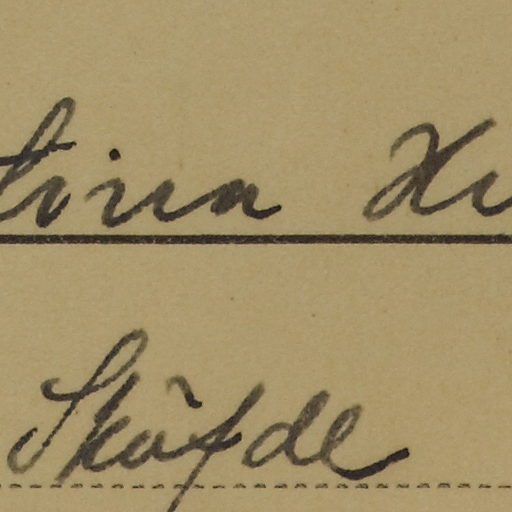 tina
Sköfde